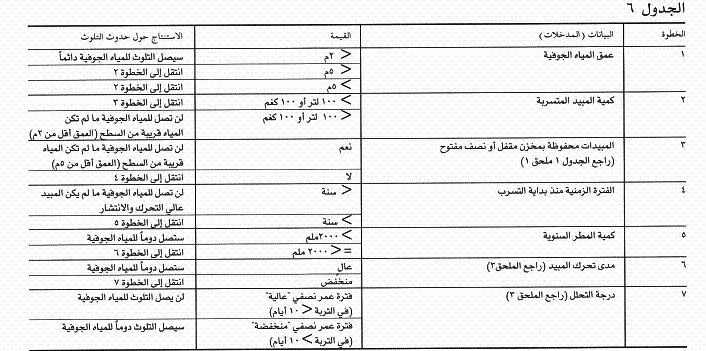 الجدول ٦
الخطوة البيانات (المدخلات) القيمة الاستنتاج حول حدوث التلوث
١ عمق المياه الجوفية < ٢م سيصل التلوث للمياه الجوفية دائماً
> ٥م انتقل إلى الخطوة ٢
< ٥م انتقل إلى الخطوة ٢
٢ كمية المبيد المتسربة > ١٠٠ لتر أو ١٠٠ كغم انتقل إلى الخطوة ٣
< ١٠٠ لتر أو ١٠٠ كغم لن تصل للمياه الجوفية ما لم تكن
المياه قريبة من السطح (العمق أقل من ٢م)
٣ المبيدات محفوظة بمخزن مقفل أو نصف مفتوح نعم لن تصل للمياه الجوفية ما لم تكن المياه
(راجع الجدول ١ ملحق ١) قريبة من السطح (العمق أقل من ٥م)
لا انتقل إلى الخطوة ٤
٤ الفترة الزمنية منذ بداية التسرب < سنة لن تصل للمياه الجوفية ما لم يكن المبيد
عالي التحرك والانتشار
> سنة انتقل إلى الخطوة ٥
٥ كمية المطر السنوية > ٢٠٠٠ملم ستصل دوماً للمياه الجوفية
=< ٢٠٠٠ ملم انتقل إلى الخطوة ٦
٦ مدى تحرك المبيد (راجع الملحق٣) عال ستصل دوماً للمياه الجوفية
منخفض انتقل إلى الخطوة ٧
٧ درجة التحلل (راجع الملحق ٣) فترة عمر نصفي "عالية" لن يصل التلوث للمياه الجوفية
(في التربة < ١٠ أيام)
فترة عمر نصفي "منخفضة" سيصل التلوث دوماً للمياه الجوفية
(في التربة > ١٠ أيام)